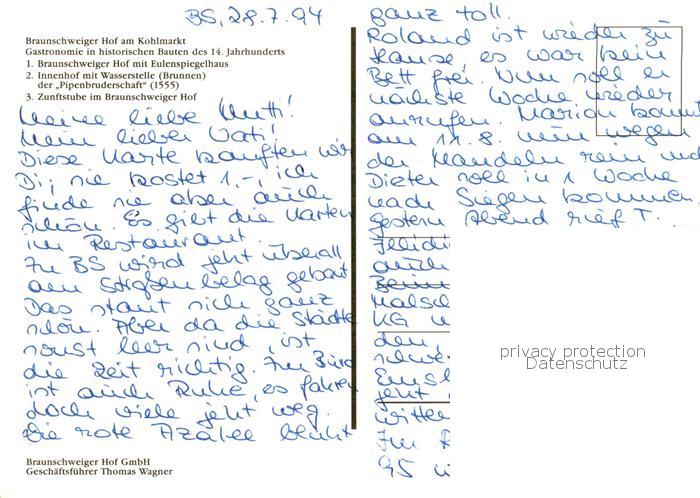 BS, 28.7.94
Braunschweiger Hof am Kohlmarkt
Gastronomie in historischen Bauten des 14. Jahrhunderts
1. Braunschweiger Hof mit Eulenspiegelhaus
2. Innenhof mit Wasserstelle (Brunnen)
der „Pipenbruderschaft" (1555)
3. Zunftstube im Braunschweiger Hof
Meine liebe Mutti!
Mein lieber Vati!
Diese Karte kauften wir
Di, sie kostet 1.-, ich
finde sie aber auch
schön. Es gibt die Karten
im Restaurant.
In BS wird jetzt überall
am Straßenbelag gebaut
Das staut sich ganz
schön. Aber da die Städte
sonst leer sind, ist
die Zeit richtig. Im Büro
ist auch Ruhe, es fahren
doch viele jetzt weg.
Die rote Azalee blüht
Braunschweiger Hof GmbH
Geschäftsführer Thomas Wagner
ganz toll.
Roland ist wieder zu
Hause es war kein
Bett frei. Nun soll er
nächste Woche wieder
anrufen. Marion kommt
am 11.8. nun wegen
der Mandeln rein und
Dieter soll in 1 Woche
nach Siegen kommen.
gestern Abend rief T.
auch
Beim
KG
den
schwe
jetzt
Im
95
privacy protection
Datenschutz